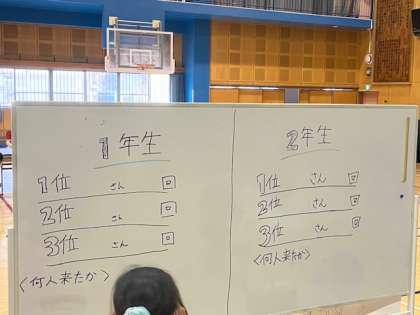 1年生
1位 さん 回
2位 さん 回
3位 さん 回
〈何人来たか〉
2年生
1位 さん 回
2位 さん 回
3位 さん 回
〈何人来たか〉